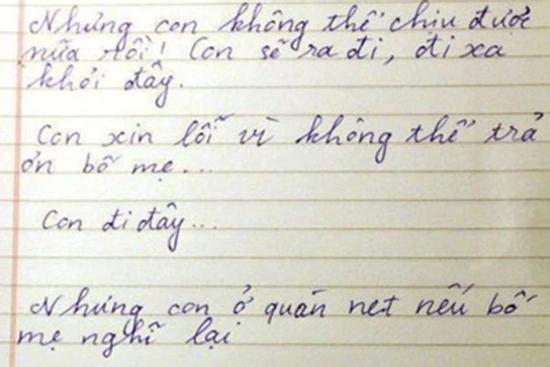 Nhưng con không thể chịu được
nữa rồi! Con sẽ ra đi, đi xa
khỏi đây.
Con xin lỗi vì không thể trả
ơn bố mẹ...
Con đi đây...
Nhưng con ở quán net nếu bố
mẹ nghĩ lại